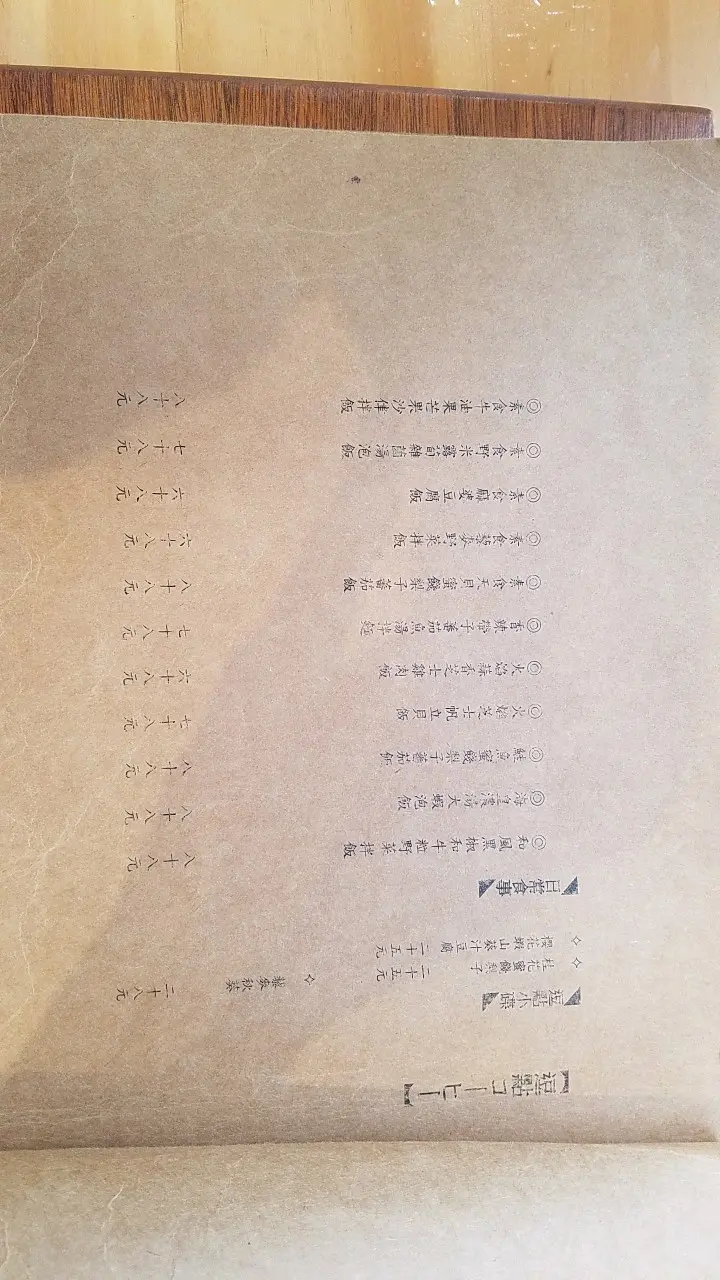 【逗點コーヒー】
【逗點小碟】
◇桂花蜜餞梨子 二十五元
◇藜麥秋葵 二十八元
◇櫻花蝦山葵汁豆腐 二十五元
【日常食事】
◎和風黑椒和牛粒野菜拌飯 八十八元
◎海皇濃湯大蝦泡飯 八十八元
◎鮮魚蜜餞梨子蕃茄飯 八十八元
◎火焰芝士帆立貝飯 七十八元
◎火焰蒜香芝士雞肉飯 六十八元
◎香辣帶子蕃茄魚湯拌麵 七十八元
◎素食天貝蜜餞梨子蕃茄飯 八十八元
◎素食藜麥野菜拌飯 六十八元
◎素食麻婆豆腐飯 六十八元
◎素食野米露筍雜菌湯泡飯 七十八元
◎素食牛油果芒果沙律拌飯 八十八元